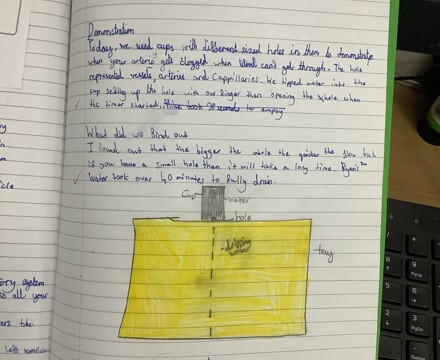 Demonstration
Today, we used cups with different sized holes in them to demonstrate
what your arteries get clogged when blood can't get through. The hole
represented vessels, arteries and Cappillaries. We tipped water into the
cup sealing up the hole with our finger than opening the whole when
the timer started.
What did we find out
I found out that the bigger the whole the quicker the flow but
if you have a small hole than it will take a long time. Ryans
water took over 40 minutes to fully drain.
Cup
water
hole
dripping
water
tray
ory system
to all your
ers the
left ventricle